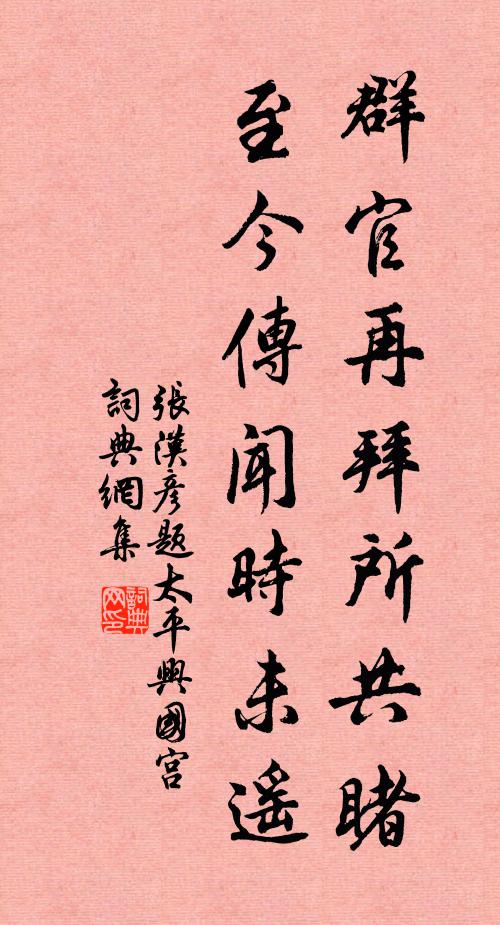 群官再拜所共睹
至今傳聞時未遥
張漢彥題太平興國宮
詞典網集
詞典网印